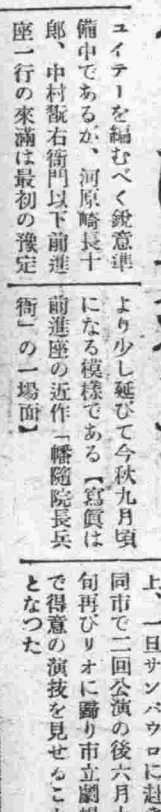 ュイテーを編むべく鋭意準
備中であるが、河原崎長十
郎、中村翫右衞門以下前進
座一行の來滿は最初の豫定
より少し延びて今秋九月頃
になる模樣である【寫眞は
前進座の近作「幡隨院長兵
衞」の一場面】
上、一旦サンパウロに赴
同市で二回公演の後六月
旬再びリオに歸り市立劇
で得意の演技を見せること
となつた